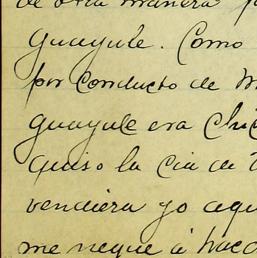 de otra manera
Guayule. Como
por conducto de M
guayule era Chic
quiso la Cia de
vendiera yo aqu
me negue á hace